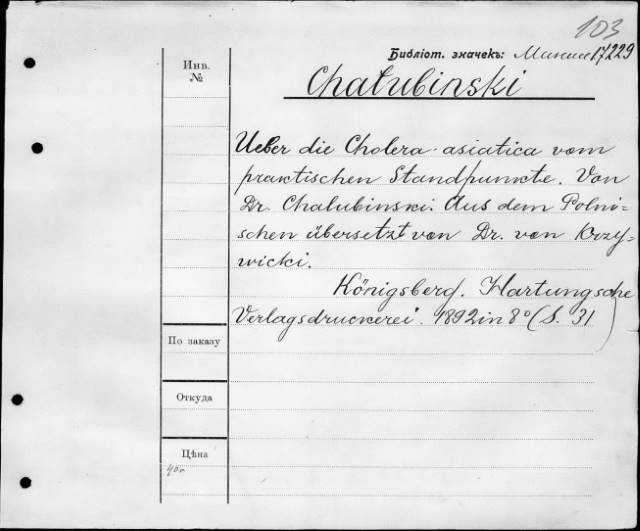 103
Библіот. значекъ: 17229
Инв.
№
Chałubinski
Ueber die Cholera asiatica vom
praktischen Standpunkte. Von
Dr. Chalubinski. Aus dem Polni-
schen übersetzt von Dr. von Krzy-
wicki.
Königsberg. Hartungsche
Verlagsdruckerei. 1892 in 8° (S. 31)
По заказу
Откуда
Цѣна